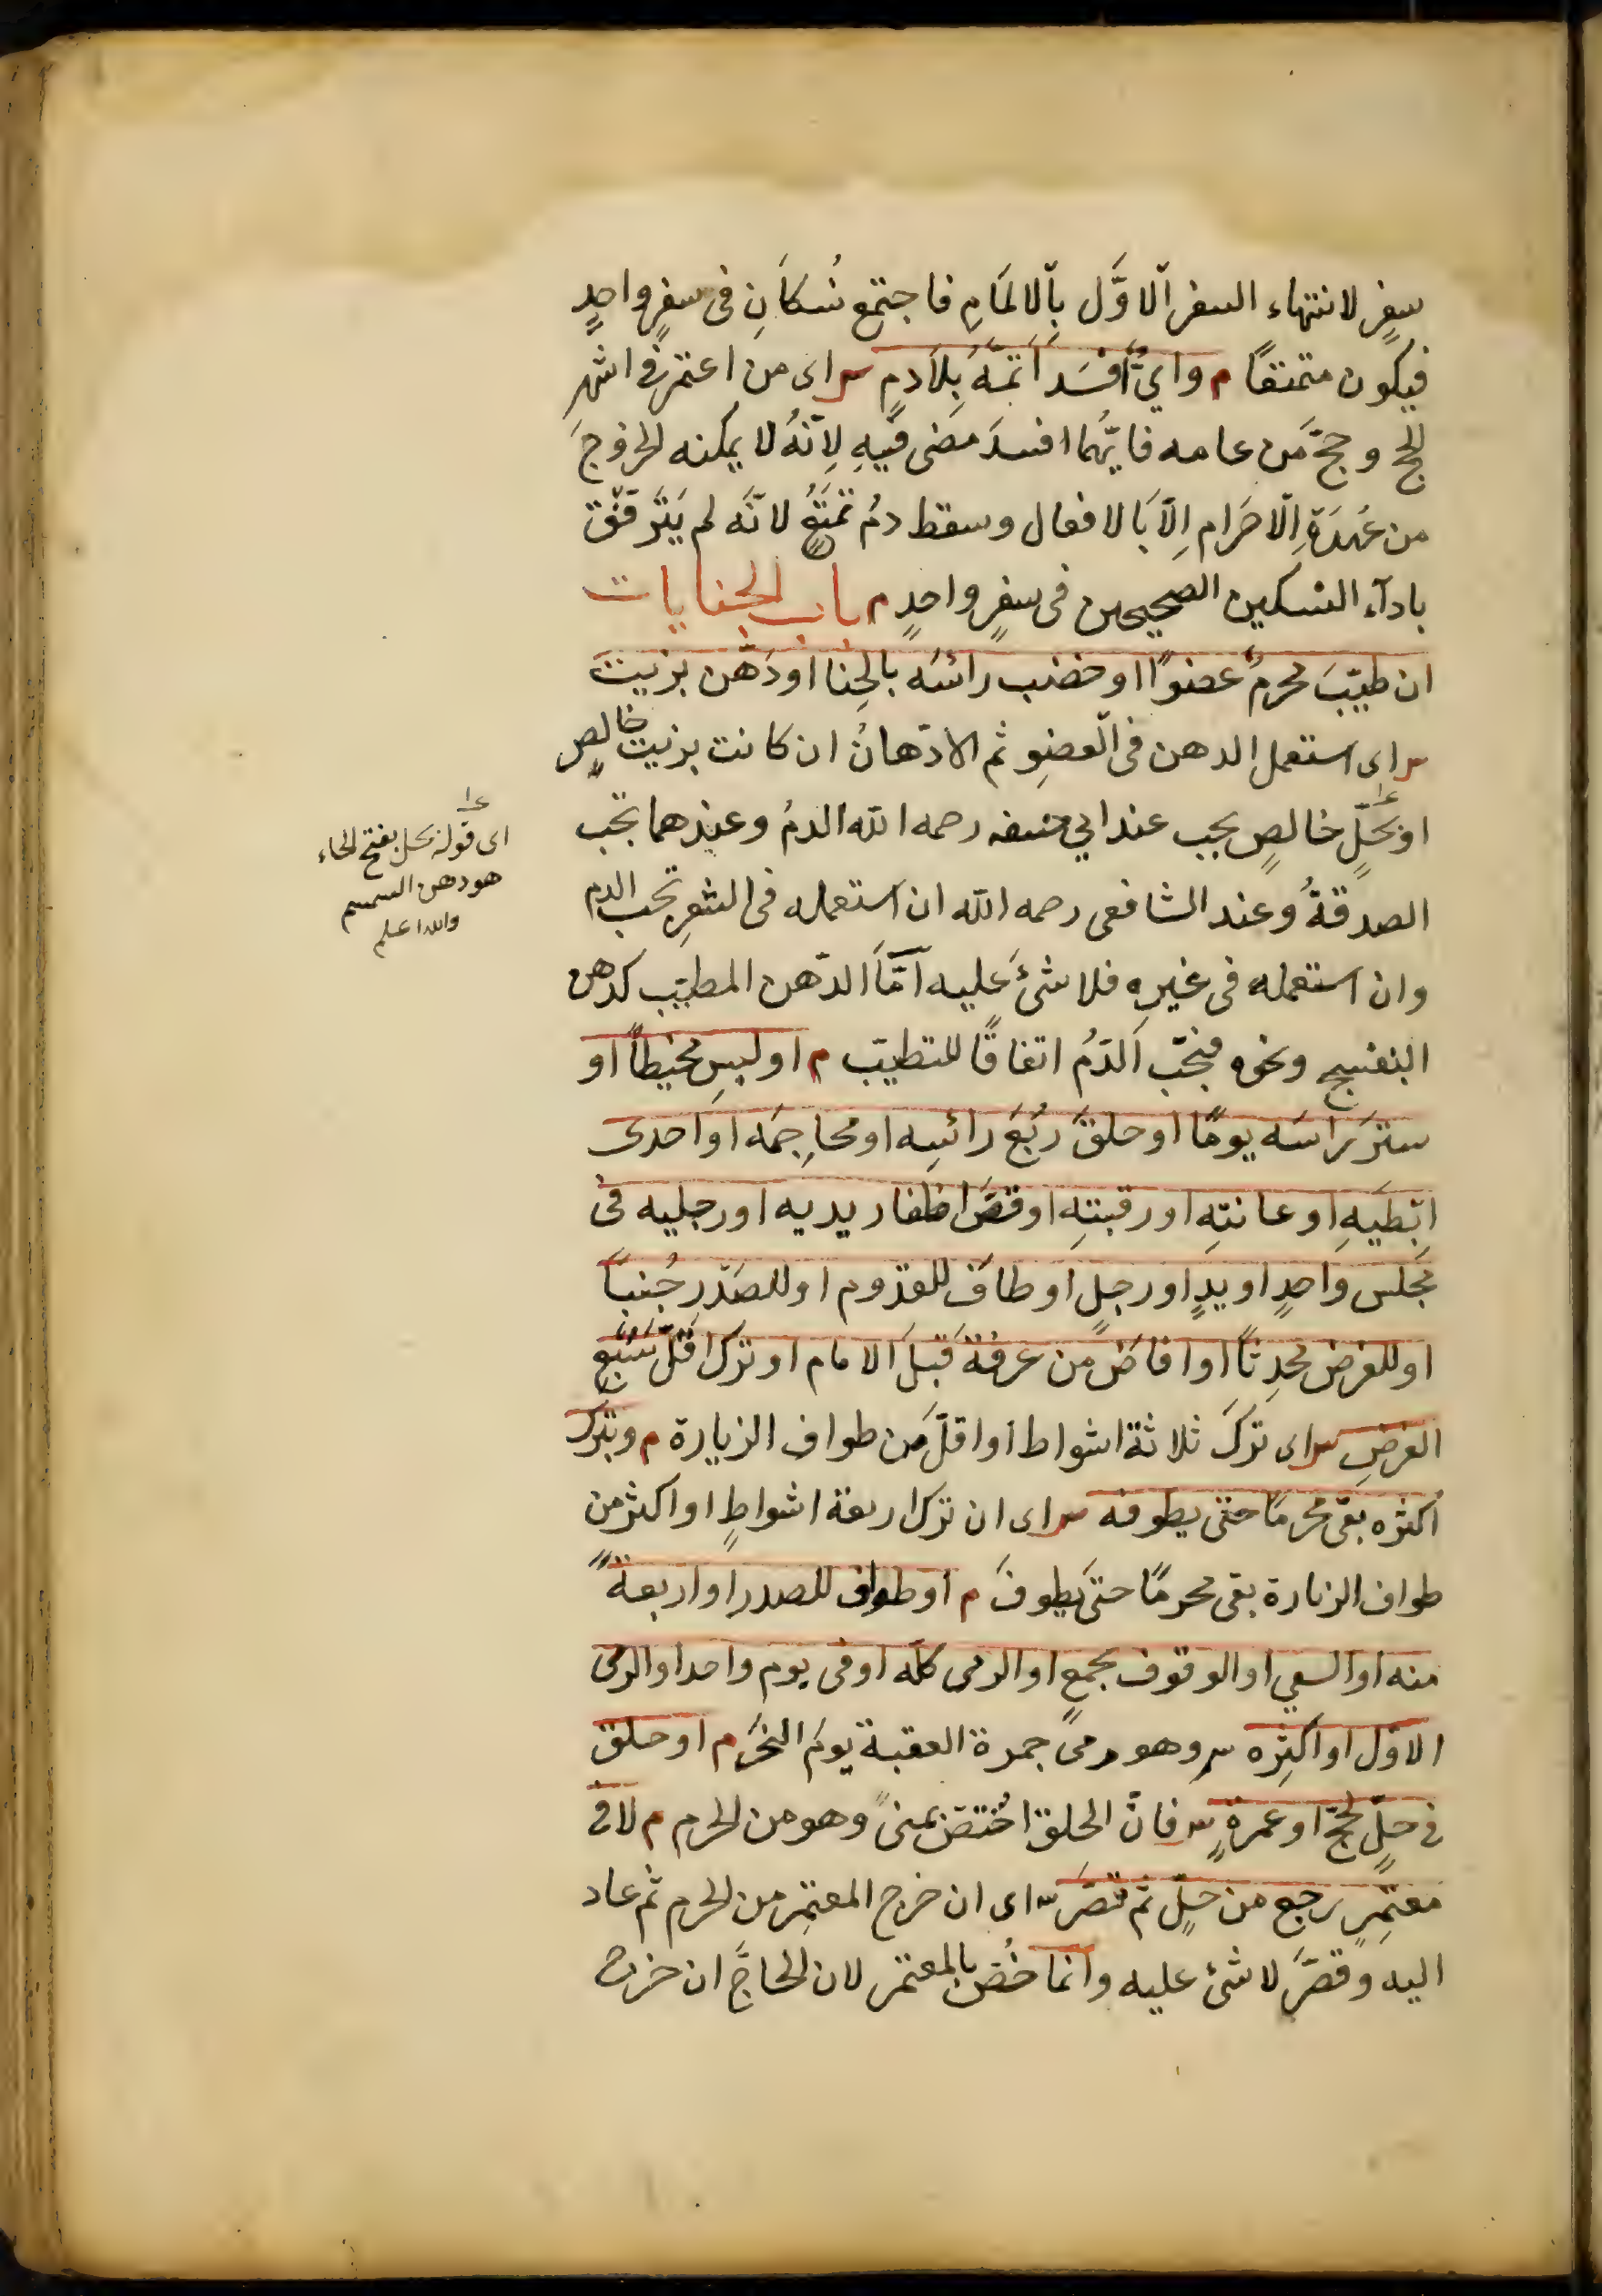 سفرٍ لانتهاء السفر الاوَّل بِالالمَامِ فاجتمع نُسكانِ فى سفرٍ واحدٍ
فيكون متمتعًا م وايٌّ اَفْسَدَ اَتمَّهُ بِلاَ دمٍ س اى من اعتمر فى اشهرِ
الحج وحجَّ من عامه فايّهما افسدَ مضى فيهِ لِاَنّهُ لا يمكنه الخروجَ
من عُهدَةِ الاحرَام اِلاَّ بَالافعال وسقط دمُ تمتّعٍ لانّه لم يَتَرفّقْ
بادآء النسكين الصحيحين فى سفرٍ واحدٍ م باب الجنايات
ان طيّبَ محرمٌ عضوًا او خضب رائسَه بالحِنا او دَهَّن بزيت
س اى استعمل الدهن فى العضوِ ثم الادّهانُ ان كانت بزيت خالصٍ
او بحَلٍّ خالصٍ يجب عند ابي حنيفه رحمه الله الدمُ وعندهما تجب
الصدقةُ وعند الشافعى رحمه الله ان استعمله فى الشعرِ تجب الدم
وان استعمله فى غيرِه فلا شئَ عليه اَمَّا الدّهن المطيّب كدهن
البنفسج ونحوه فيجب الدّمُ اتفاقًا للتطيّب م او لبِس مخيطاً او
سترَ راسَه يومًا او حلقَ ربُعَ رائسِه او محاجِمَه او احدى
ابطيَهِ او عانتِهِ او رقبتِهِ او قصَّ اظفار يديه او رجليه فى
مجلس واحدٍ او يدٍ او رجلٍ او طافَ للقدوم او للصَدَر جُنبًا
او للفرض محدِثًا او افاضَ من عرفةَ قبلَ الامام او تركَ اقلَّ سَبْعِ
الفرضِ س اى تركَ ثلاثة اشواط او اقلَّ من طواف الزيارة م وبترك
اكثرِه بقى محرمًا حتى يطوفه س اى ان ترك اربعة اشواطٍ او اكثر من
طواف الزيارة بقى محرمًا حتى يَطوفَ م او طواف للصدر او اربعةً
منه او السعي او الوقوف بجمعٍ او الرمى كلّه او فى يوم واحد او الرمى
الاوّل او اكثرِه س وهو رمى جمرة العقبة يومَ النحَر م او حلق
فى حِلٍّ لحجٍّ او عمرةٍ س فانّ الحلق اختصّ بمنىً وهو من الحرم م لا فى
معتمِرٍ رجع من حلٍّ ثم قصَرَ س اى ان خرج المعتمِر من الحرم ثم عاد
اليه وقصَّرَ لا شئ عليه وانما خُصَّ بالمعتمر لان الحاجَّ ان خرج
اى قوله بحل بفتح الحاء
هو دهن السمسم
والله اعلم